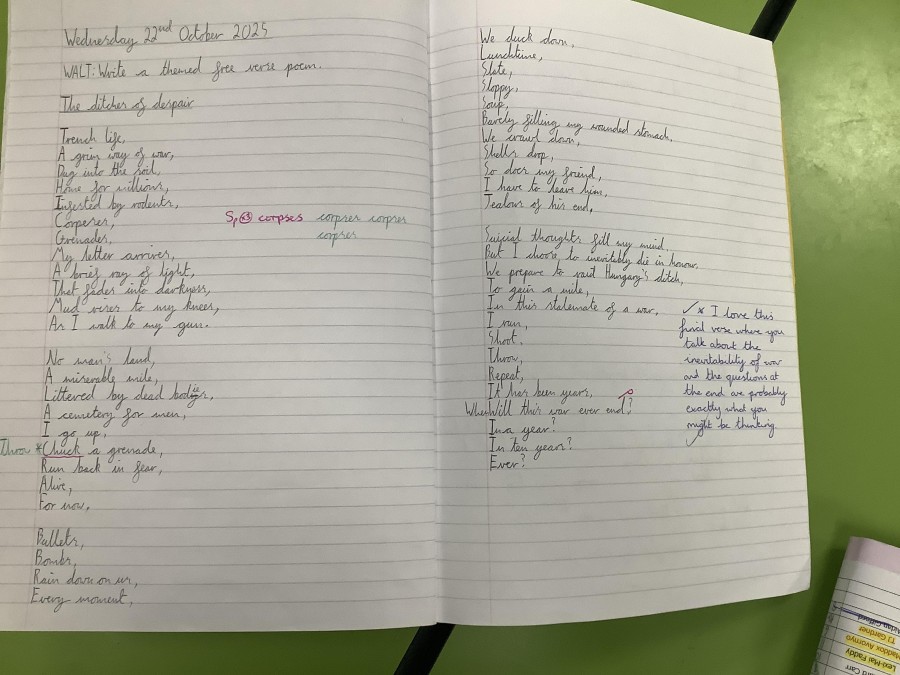 Wednesday 22nd October 2025
WALT: Write a themed free verse poem.
The ditches of despair
Trench life,
A grim way of war,
Dug into the soil,
Home for millions,
Infested by rodents,
Corpses, Sp x3 corpses corpses corpses
corpses
Grenades,
My letter arrives,
A brief ray of light,
That fades into darkness,
Mud rises to my knees,
As I walk to my gun.
No man's land,
A miserable mile,
Littered by dead bodies,
A cemetery for men,
I go up,
Throw *Chuck a grenade,
Run back in fear,
Alive,
For now,
Bullets,
Bombs,
Rain down on us,
Every moment,
We duck down,
Lunchtime,
Slate,
Sloppy,
Soup,
Barely filling my wounded stomach,
We crawl down,
Shells drop,
So does my friend,
I have to leave him,
Jealous of his end,
Suicial thoughts fill my mind,
But I choose to inevitably die in honour,
We prepare to raid Hungary's ditch,
To gain a mile,
In this stalemate of a war,
I run,
Shoot,
Throw,
Repeat,
It has been years,
When Will this war ever end?
In a year?
In ten years?
Ever?
✓* I love this
final verse where you
talk about the
inevitability of war
and the questions at
the end are probably
exactly what you
might be thinking.
✓
TJ Gardner
Lexi-Mai Paddy
Carr